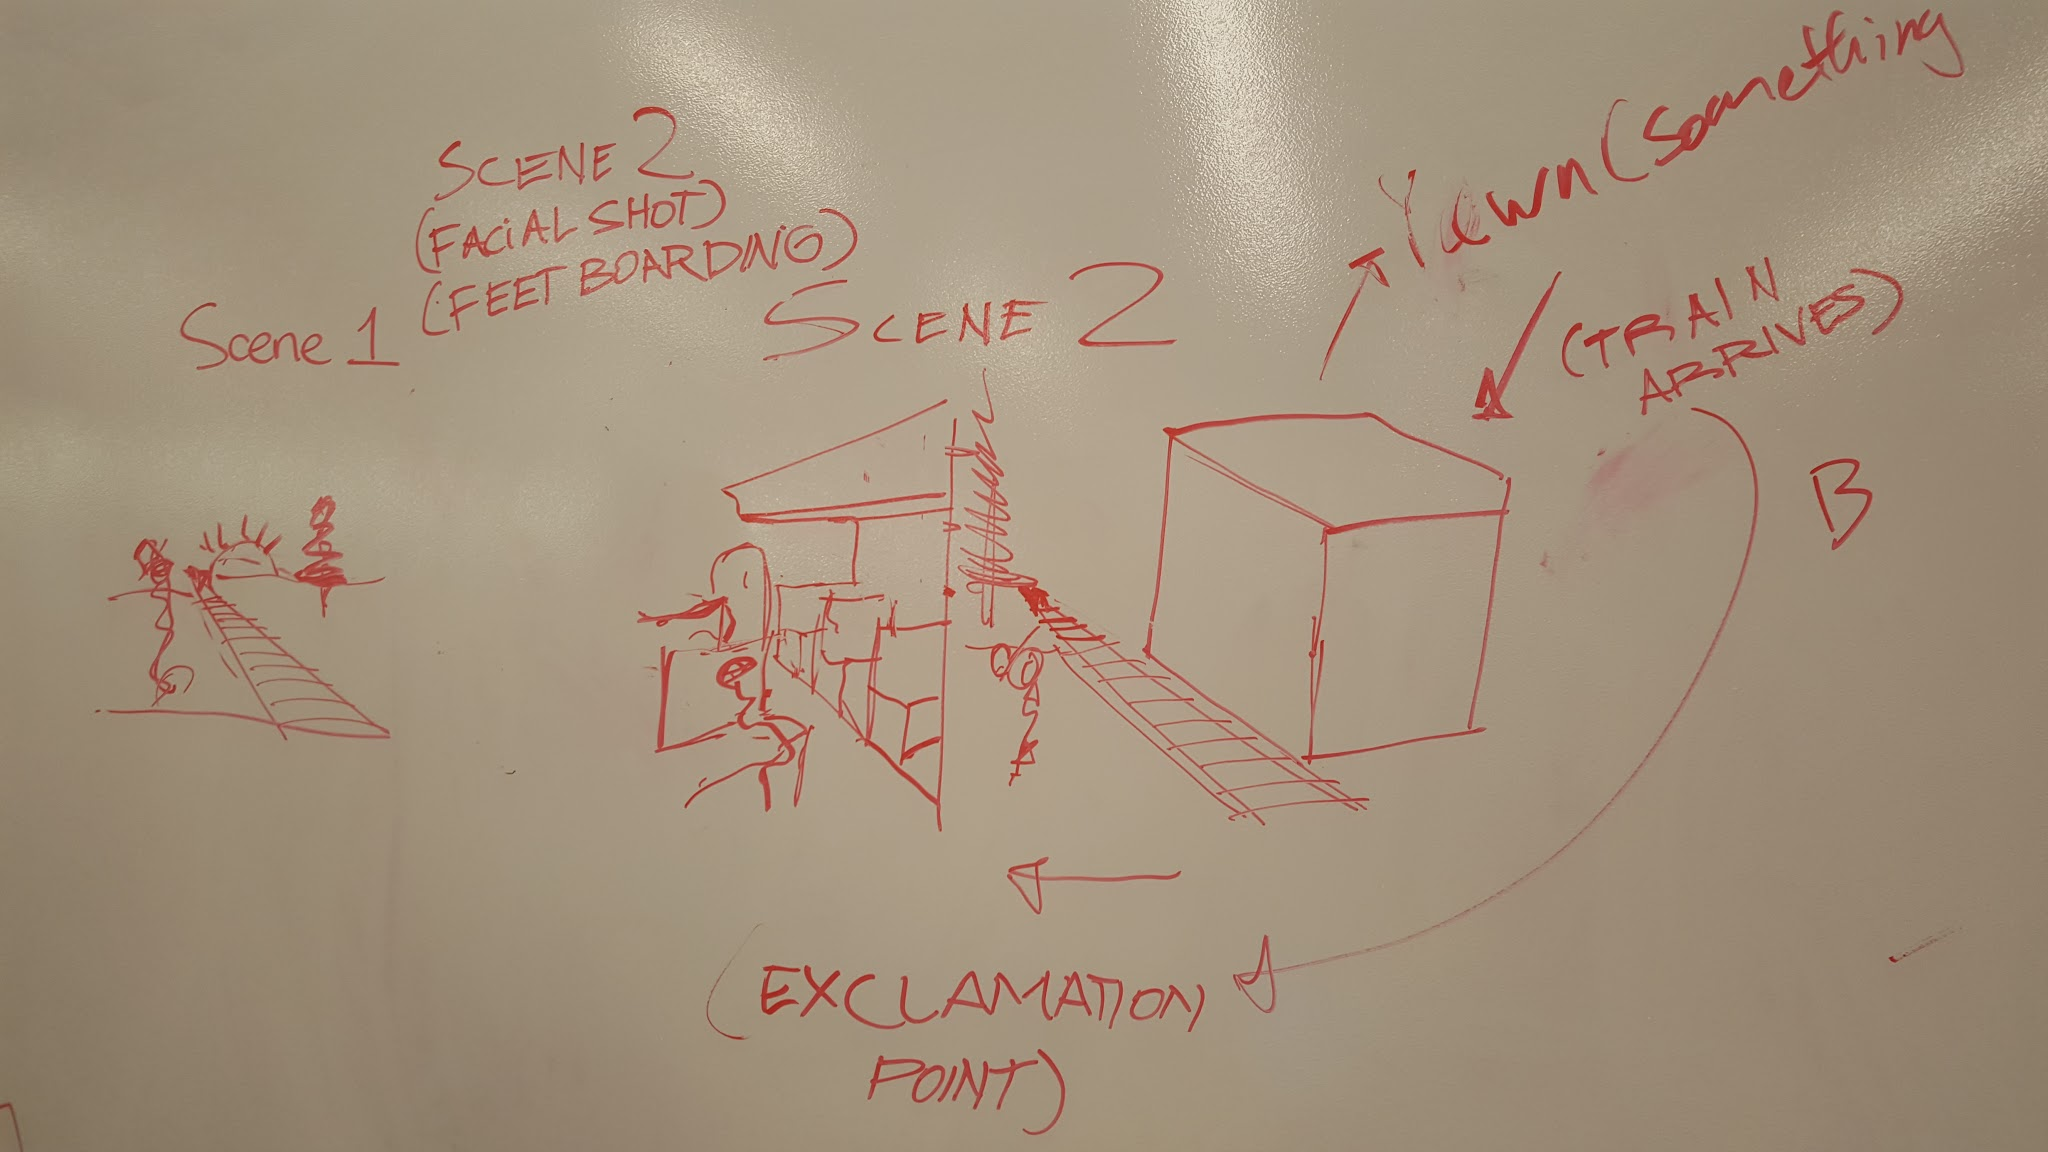 Scene 1
SCENE 2
(FACiAL SHOT)
(FEET BOARDING)
SCENE 2
Yawn (Something
(TRAIN
ARRIVES)
B
(EXCLAMATION
POINT)